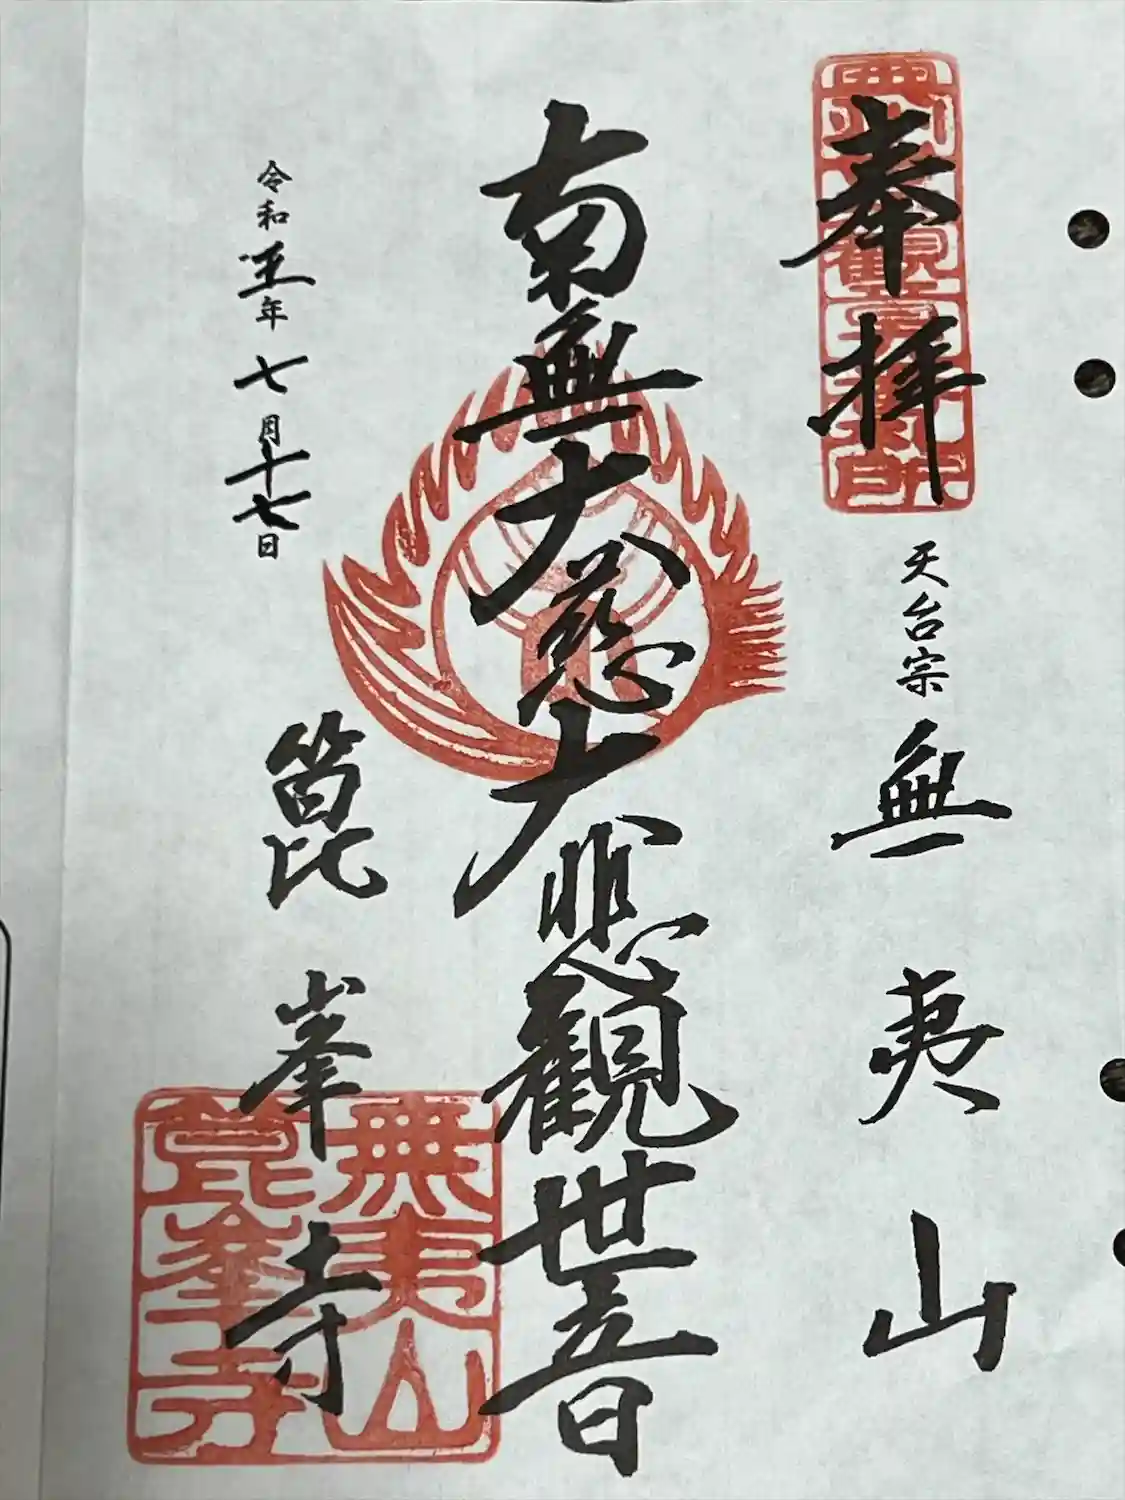 奉拝
天台宗 無夷山
南無大慈大悲觀世音
箟峯寺
令和五年七月十七日
無夷山
箟峯寺